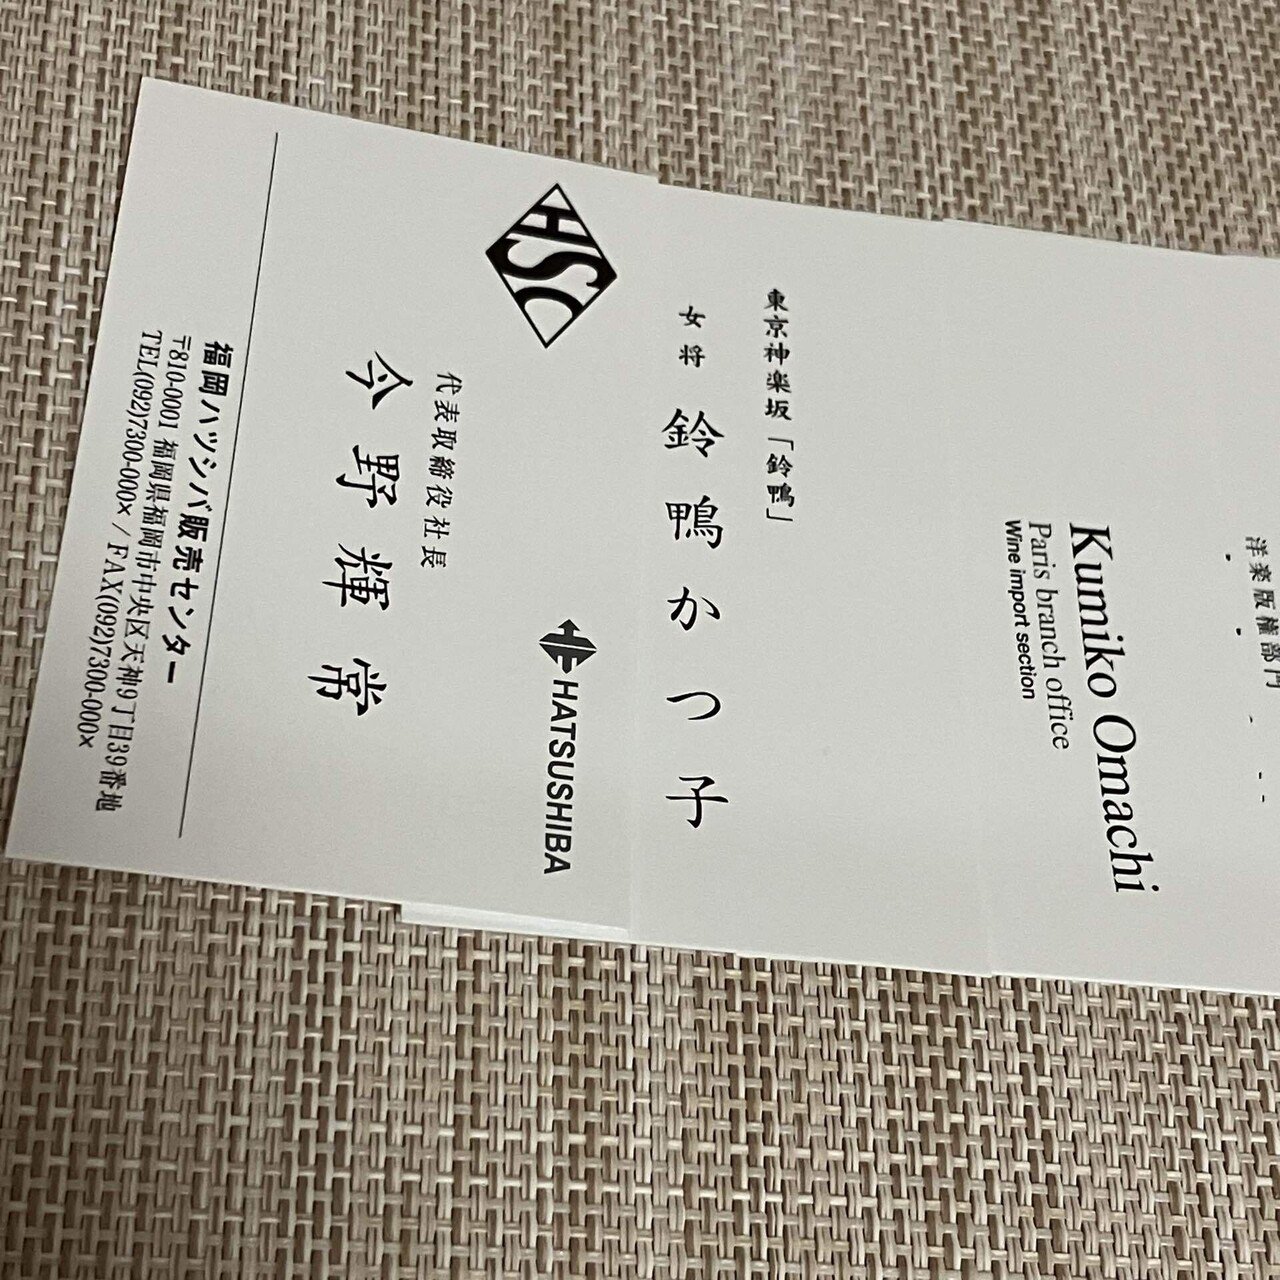 HSC
HATSUSHIBA
代表取締役社長
今野輝常
福岡ハツシバ販売センター
〒810-0001 福岡県福岡市中央区天神9丁目39番地
TEL(092)7300-000× / FAX(092)7300-000×
東京神楽坂「鈴鴨」
女将 鈴鴨かつ子
Kumiko Omachi
Paris branch office
Wine import section
洋楽版權部門